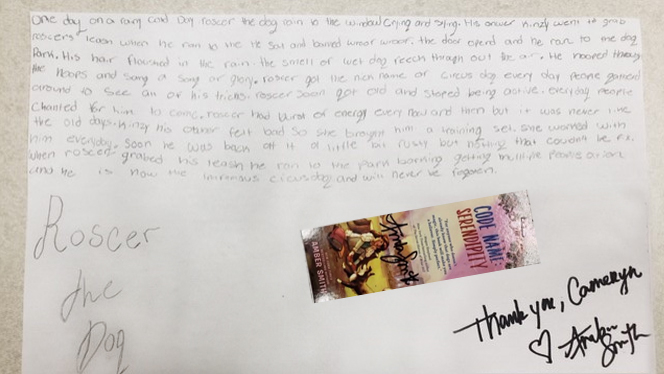 One day on a rainy cold Day roscer the dog ran to the window crying and sying. His owner kinzy went to grab
roscers leash when he ran to the He sat and barked woor woor. the door opend and he ran to the dog
Park. His hair flowed in the rain. the smell of wet dog reech through out the air. He hooped through
the hoops and sang a song or glory. roscer got the nick name or circus dog every day people gatherd
around to see all or his tricks. roscer soon got old and stoped being active. everyday people
chanted for him to come. roscer had burst of energy every now and then but it was never like
the old days. kinzy his owner felt bad so she brought him a training set. she worked with
him everyday. soon he was back at it a little bit rusty but nothing that couldn't be
when roscer grabed his leash he ran to the park barking getting multiple peoples
and he is now the circusdog and will never be
Roscer
the
Dog
CODE NAME:
SERENDIPITY
AMBER SMITH
Thank you, Cameryn
♡ Amber
Smith